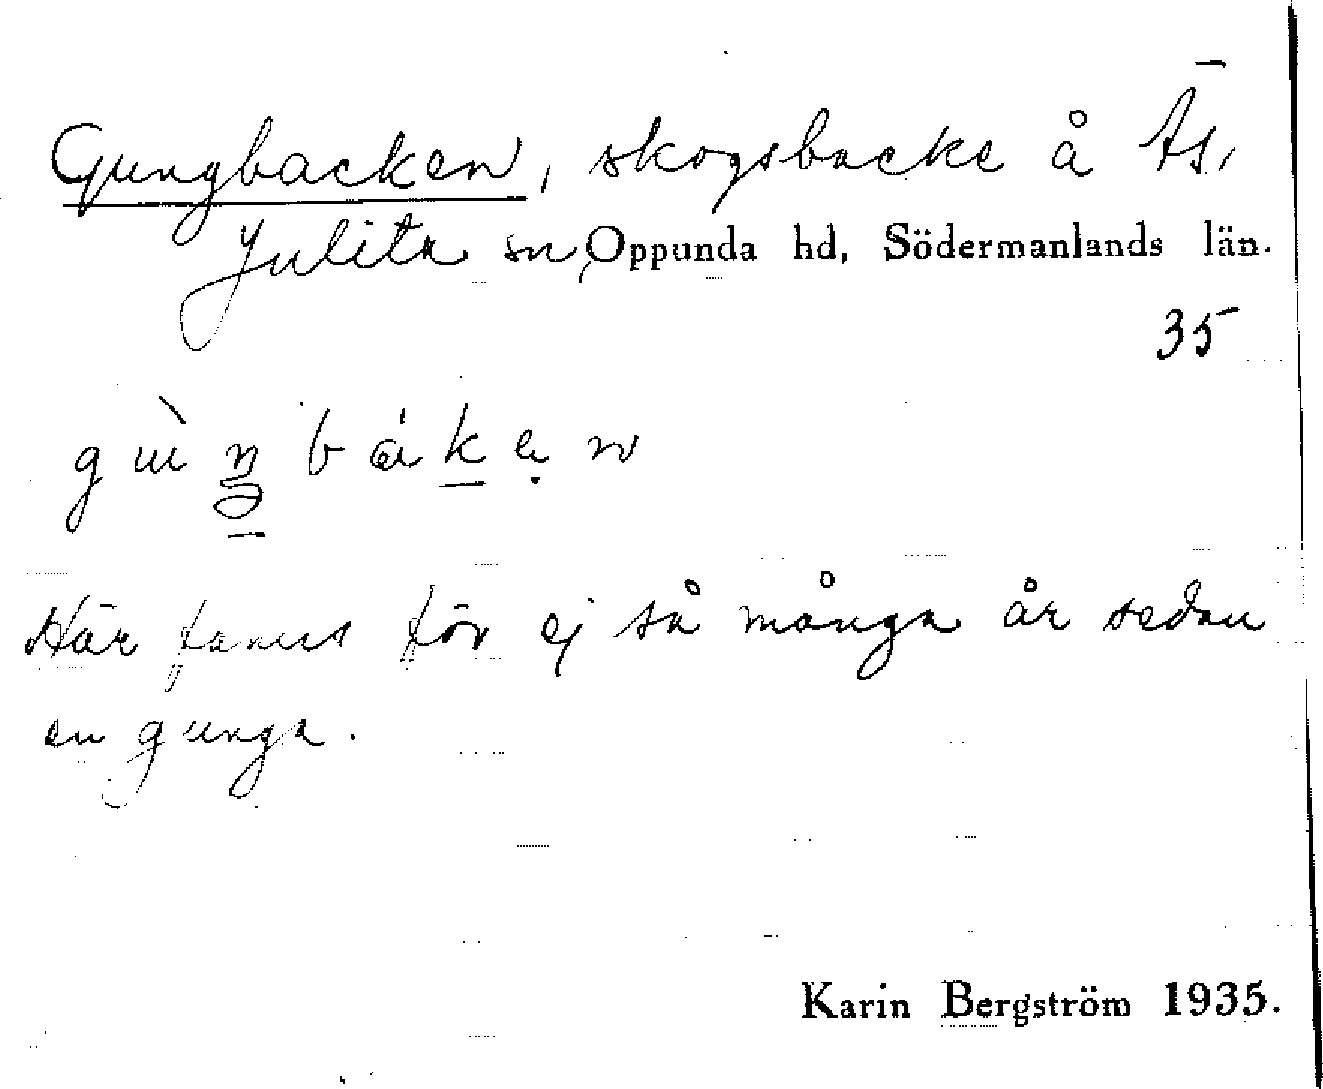 Gungbacken, skogsbacke å Äs,
Julita sn, Oppunda hd, Södermanlands län.
35
Här fanns för ej så många år sedan
en gunga.
Karin Bergström 1935.